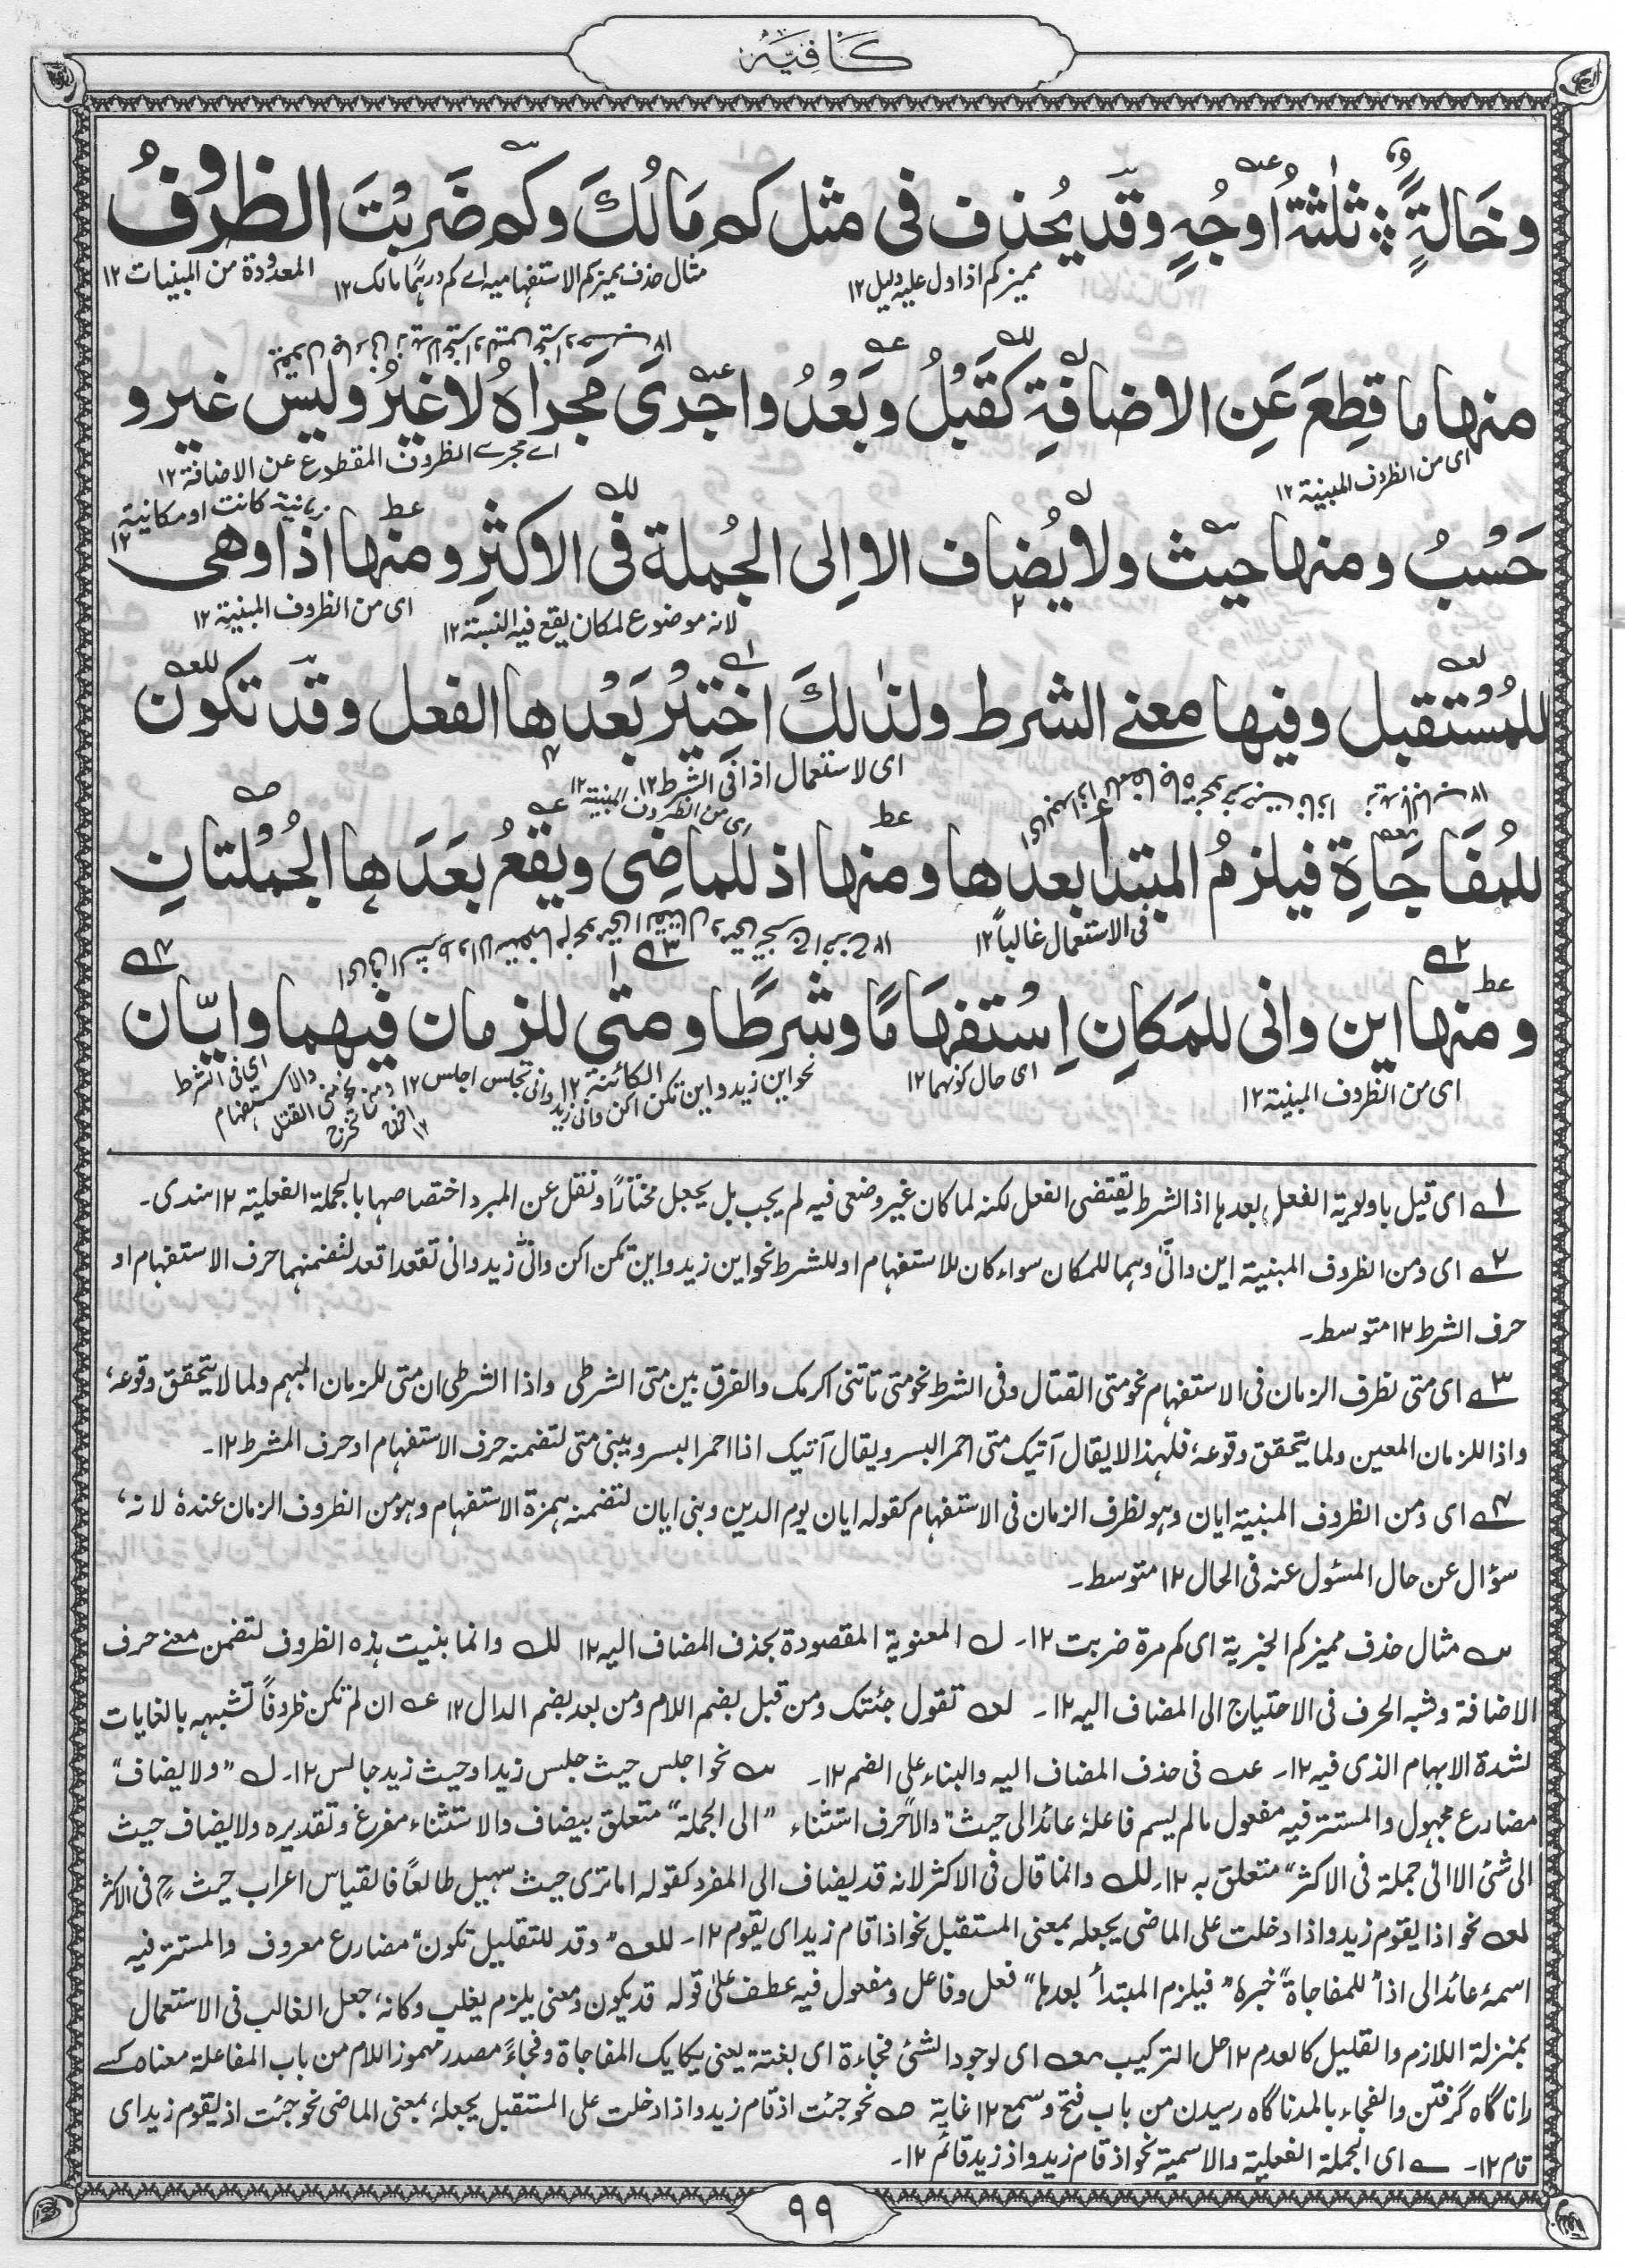 كَافِيَه
وخَالةٍ ثلٰثةُ اوجُهٍ وقد يُحذف فى مثل كم مَالُكَ وكم ضَرَبْتَ الظروفُ
مميز كم اذا دل عليه دليل ١٢
مثال حذف مميز كم الاستفهامية اے كم درہمًا مالك ١٢
المعدودة من المبنيات ١٢
منها ما قطِعَ عَنِ الاضافةِ كقَبْلُ وبَعْدُ واجرىَ مَجراهُ لاغيرُ وليس غير و
اى من الظروف المبنية ١٢
اے مجرے الظروف المقطوع عن الاضافة ١٢
حَسْبُ ومنها حيث ولا يُضاف الا اِلى الجُملة فى الاكثرِ ومنها اذا وهى
زمانية كانت او مكانية ١٢
لانه موضوع لمكان يقع فيه النسبة ١٢
اى من الظروف المبنية ١٢
للمُسْتقبل وفيها معنے الشرط ولذٰلكَ اختيْرَ بَعْدها الفعل وقد تكون
اى لاستعمال اذا فى الشرط ١٢
اى من الظروف المبنية ١٢
للمُفَاجَاةِ فيلزمُ المبتدأ بعدها ومنها اذ للماضِى ويقعُ بعَدَها الجُمْلتانِ
فى الاستعمال غالباً ١٢
ومنها اين وانى للمَكانِ اِسْتفهَامًا وشرطًا ومتى للزمان فيهما وايّان
اى من الظروف المبنية ١٢
اى حال كونهما ١٢
الكائنة ١٢
نحو اين زيد واين تكن اكن وانى زيد وانى تجلس اجلس ١٢
اى فى الشرط والاستفهام
١ اى قيل باولوية الفعل بعدها اذ الشرط يقتضى الفعل لكنه لما كان غير وضعى فيه لم يجب بل يجعل مختارًا ونقل عن المبرد اختصاصها بالجملة الفعلية ١٢ سندى۔
٢ اى ومن الظروف المبنية اين وانّٰى وہما للمكان سواء كان للاستفہام او للشرط نحو اين زيد واين تكن اكن وانّٰى زيد وانى تقعد اقعد لتضمنہما حرف الاستفہام او
حرف الشرط ١٢ متوسط۔
٣ اى متى لظرف الزمان فى الاستفہام نحو متى القتال وفى الشرط نحو متى تاتنى اكرمك والفرق بين متى الشرطى واذا الشرطى ان متى للزمان المبہم ولما لا يتحقق وقوعہ،
واذا للزمان المعين ولما يتحقق وقوعہ، فلہذا لا يقال آتيك متى احمر البسر ويقال آتيك اذا احمر البسر وبنى متى لتضمنہ حرف الاستفہام او حرف الشرط ١٢۔
٤ اى ومن الظروف المبنية ايان وہو لظرف الزمان فى الاستفہام كقولہ ايان يوم الدين وبنى ايان لتضمنہ ہمزة الاستفہام وہو من الظروف الزمان عندہ لانہ،
سؤال عن حال المسئول عنہ فى الحال ١٢ متوسط۔
مثال حذف مميز كم الخبرية اى كم مرة ضربت ١٢۔ المعنوية المقصودة بحذف المضاف اليہ ١٢ وانما بنيت ہذہ الظروف لتضمن معنے حرف
الاضافة وشبہ الحرف فى الاحتياج الى المضاف اليہ ١٢۔ تقول جئتك ومن قبل بضم اللام ومن بعد بضم الدال ١٢ ان لم تكن ظروفاً تشبہہ بالغايات
لشدة الابہام الذى فيہ ١٢۔ فى حذف المضاف اليہ والبناء على الضم ١٢۔ نحو اجلس حيث جلس زيد او حيث زيد جالس ١٢۔ "ولا يضاف"
مضارع مجہول والمستتر فيہ مفعول مالم يسم فاعلہ، عائد الى حيث" والا حرف استثناء "الى الجملة" متعلق بيضاف والاستثناء مفرغ وتقديرہ ولا يضاف حيث
الى شئ الا الى جملة فى الاكثر" متعلق بہ ١٢۔ وانما قال فى الاكثر لانہ قد يضاف الى المفرد كقولہ اما ترى حيث سہيل طالعاً فالقياس اعراب حيث ح فى الاكثر
نحو اذا يقوم زيد واذا دخلت على الماضى يجعلہ بمعنى المستقبل نحو اذا قام زيد اى يقوم ١٢۔ "وقد للتقليل تكون" مضارع معروف والمستتر فيہ
اسمہ عائد الى اذا "للمفاجاة" خبرہ "فيلزم المبتدأ بعدہا" فعل وفاعل ومفعول فيہ عطف علٰى قولہ قد يكون ومعنى يلزم يغلب وكانہ، جعل الغالب فى الاستعمال
بمنزلة اللازم والقليل كالعدم ١٢ حل التركيب اى لوجود الشئ فجاءة اى بغتة يعنى يكايك المفاجاة وفجاءً مصدر مہموز اللام من باب المفاعلة معناہ كسے
را ناگاہ گرفتن والفجاء بالمد ناگاہ رسيدن من باب فتح وسمع ١٢ غاية نحو جئت اذ قام زيد واذا دخلت على المستقبل يجعلہ، بمعنى الماضى نحو جئت اذ يقوم زيد اى
قام ١٢۔ اى الجملة الفعلية والاسمية نحو اذ قام زيد واذ زيد قائم ١٢۔
٩٩